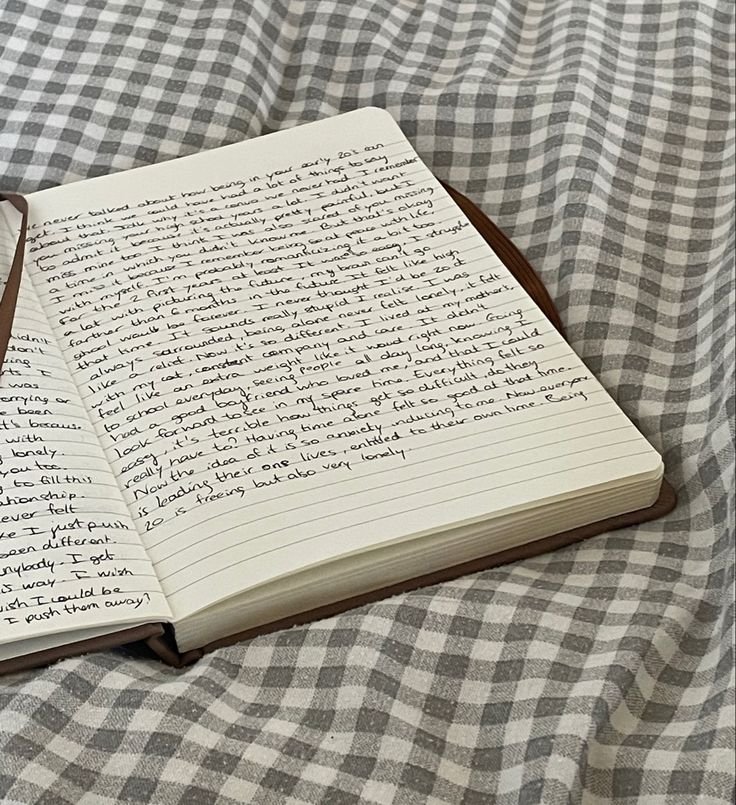 idn't
don't
ing it
t I
was
orrying or
e been
t's because
with
lonely
you too.
to fill this
ationship.
ever felt
ke I just push
been different.
nybody. I get
is way. I wish
wish I could be
I push them away?
we never talked about how being in your early 20's can
get. I think we could have had a lot of things to say
about that. Sadly, it's a convo we never had. I remember
you missing your high school years a lot. I didn't want
to admit it because it's actually pretty painful but I
miss mine too. I think I was also scared of you missing
a time in which you didn't know me. But that's okay
I miss it because I remember being so at peace with life,
with myself. I'm probably romanticising it a bit too
for the 2 first years at least. It was so easy. I struggle
a lot with picturing the future, my brain can't go
farther than 6 months in the future. It felt like high
school would be forever. I never thought I'd be 20,
that time. It sounds really stupid. I realise I was
always sarrounded, being alone never felt lonely, it felt
like a relief. Now it's so different. I lived at my mother's,
with my cat, constant company and care. It didn't
feel like an extra weight like it would right now. Going
to school everyday, seeing people all day long, knowing I
had a good boyfriend who loved me, and that I could
look forward to see in my spare time. Everything felt so
easy, it's terrible how things get so difficult, do they
really have to? Having time alone felt so good at that time.
Now the idea of it is so anxiety inducing to me. Now everyone
is leading their one lives, entitled to their own time. Being
20 is freeing but also very lonely.